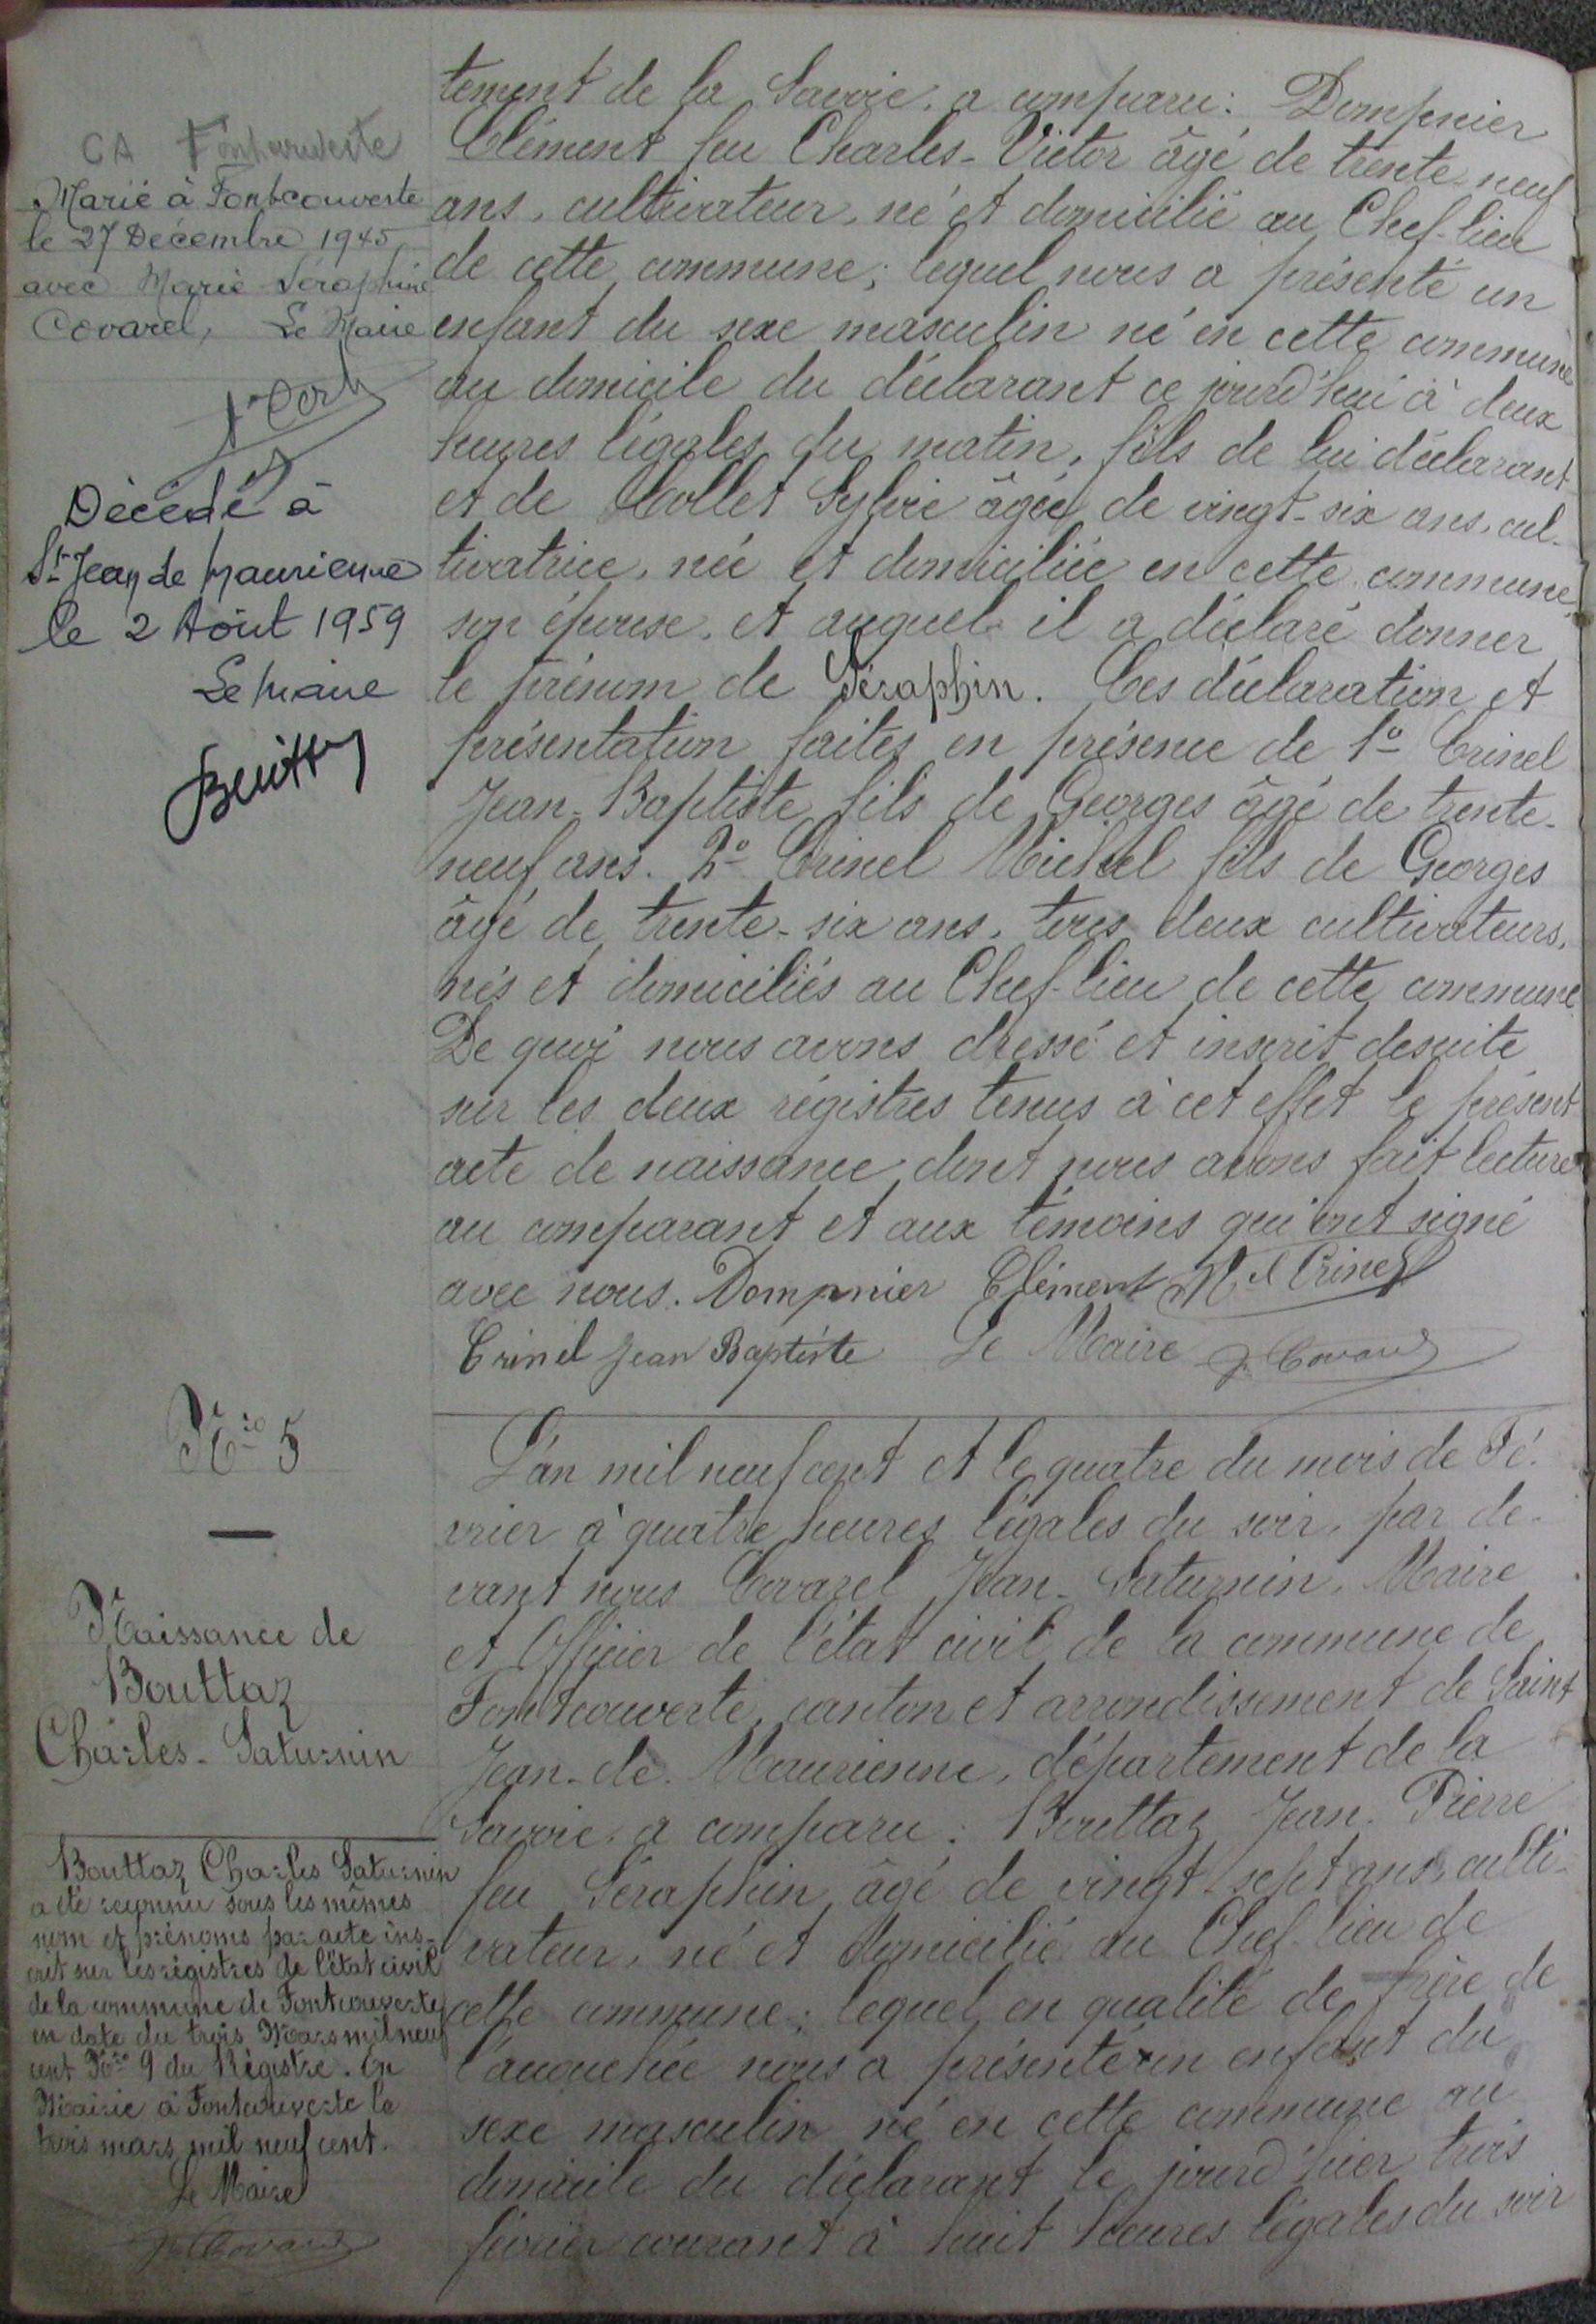 CA Fontcouverte
Marié à Fontcouverte
le 27 Décembre 1945
avec Marie Séraphine
Covarel, Le Maire
Décédé à
St Jean de Maurienne
le 2 Août 1959
Le Maire
tement de la Savoie, a comparu: Dompnier
Clément feu Charles-Victor âgé de trente-neuf
ans, cultivateur, né et domicilié au Chef-lieu
de cette commune; lequel nous a présenté un
enfant du sexe masculin né en cette commune
au domicile du déclarant ce jourd'hui à deux
heures légales du matin, fils de lui déclarant
et de Collet Sylvie âgée de vingt-six ans, cul-
tivatrice, née et domiciliée en cette commune,
son épouse, et auquel il a déclaré donner
le prénom de Séraphin. Ces déclaration et
présentation faites en présence de 1º Crinel
Jean-Baptiste fils de Georges âgé de trente-
neuf ans. 2º Crinel Michel fils de Georges
âgé de trente-six ans, tous deux cultivateurs,
nés et domiciliés au Chef-lieu de cette commune.
De quoi nous avons dressé et inscrit desuite
sur les deux régistres tenus à cet effet le présent
acte de naissance dont nous avons fait lecture
au comparant et aux témoins qui ont signé
avec nous. Dompnier Clément Mel Crinel
Crinel Jean Baptiste Le Maire J. Covarel
Nro 5
Naissance de
Bouttaz
Charles-Saturnin
Bouttaz Charles Saturnin
a été reconnu sous les mêmes
nom et prénoms par acte ins-
crit sur les régistres de l'état civil
de la commune de Fontcouverte
en date du trois Mars mil neuf
cent Nro 9 du Régistre. En
Mairie à Fontcouverte le
trois mars mil neuf cent.
Le Maire
J. Covarel
L'an mil neuf cent et le quatre du mois de Fé-
vrier à quatre heures légales du soir, par de-
vant nous Covarel Jean-Saturnin, Maire
et Officier de l'état civil de la commune de
Fontcouverte, canton et arrondissement de Saint
Jean-de-Maurienne, département de la
Savoie, a comparu: Bouttaz Jean-Pierre
feu Séraphin âgé de vingt-sept ans, culti-
vateur, né et domicilié au Chef-lieu de
cette commune; lequel en qualité de frère de
l'accouchée nous a présenté un enfant du
sexe masculin né en cette commune au
domicile du déclarant le jourd'hier trois
février courant à huit heures légales du soir